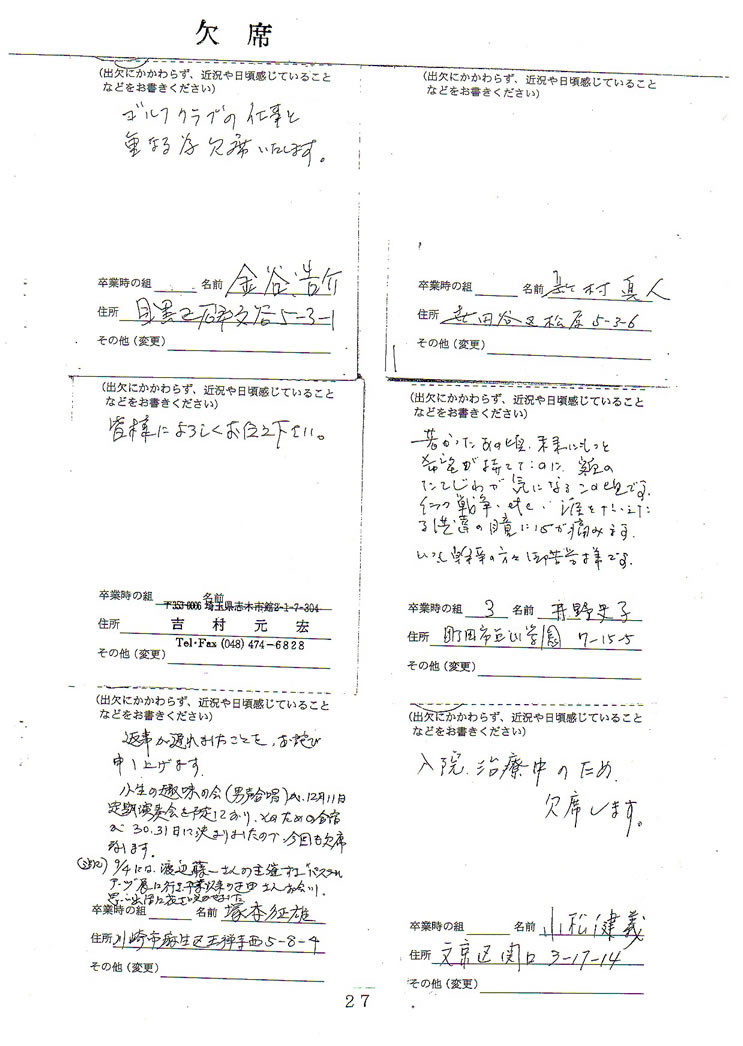 欠席
(出欠にかかわらず、近況や日頃感じていること
などをお書きください)
ゴルフクラブの仕事と
重なる為欠席いたします。
卒業時の組 名前 金谷浩介
住所 目黒区 5-3-1
その他(変更)
(出欠にかかわらず、近況や日頃感じていること
などをお書きください)
卒業時の組 名前 村真人
住所 世田谷区松原5-3-6
その他(変更)
(出欠にかかわらず、近況や日頃感じていること
などをお書きください)
皆様によろしくお伝え下さい。
卒業時の組 名前
〒353-0006 埼玉県志木市館2-1-7-304
住所 吉村元宏
Tel・Fax (048) 474-6828
その他(変更)
(出欠にかかわらず、近況や日頃感じていること
などをお書きください)
若かったあの頃、未来にもっと
希望が持てて
たてじわが気になるこの頃です。
戦争、etc
の瞳に心が痛みます。
いつも幹事の方々御苦労様です。
卒業時の組 3 名前 井野史子
住所 町田市玉川学園 7-15-5
その他(変更)
(出欠にかかわらず、近況や日頃感じていること
などをお書きください)
返事が遅れましたことを、お詫び
申し上げます。
小生の趣味の会(男声合唱)が、12月11日
定期演奏会を予定しており、そのための合宿
が 30.31日に決まりましたので、今回も欠席
します。
(追記) 9/4には、渡辺藤一さんの主催する"パステル
アーツ"展に行き卒業以来の さんお会い、
卒業時の組 名前 塚本征雄
住所 川崎市麻生区王禅寺西5-8-4
その他(変更)
(出欠にかかわらず、近況や日頃感じていること
などをお書きください)
入院、治療中のため、
欠席します。
卒業時の組 名前 小松健義
住所 文京区関口 3-17-14
その他(変更)
27